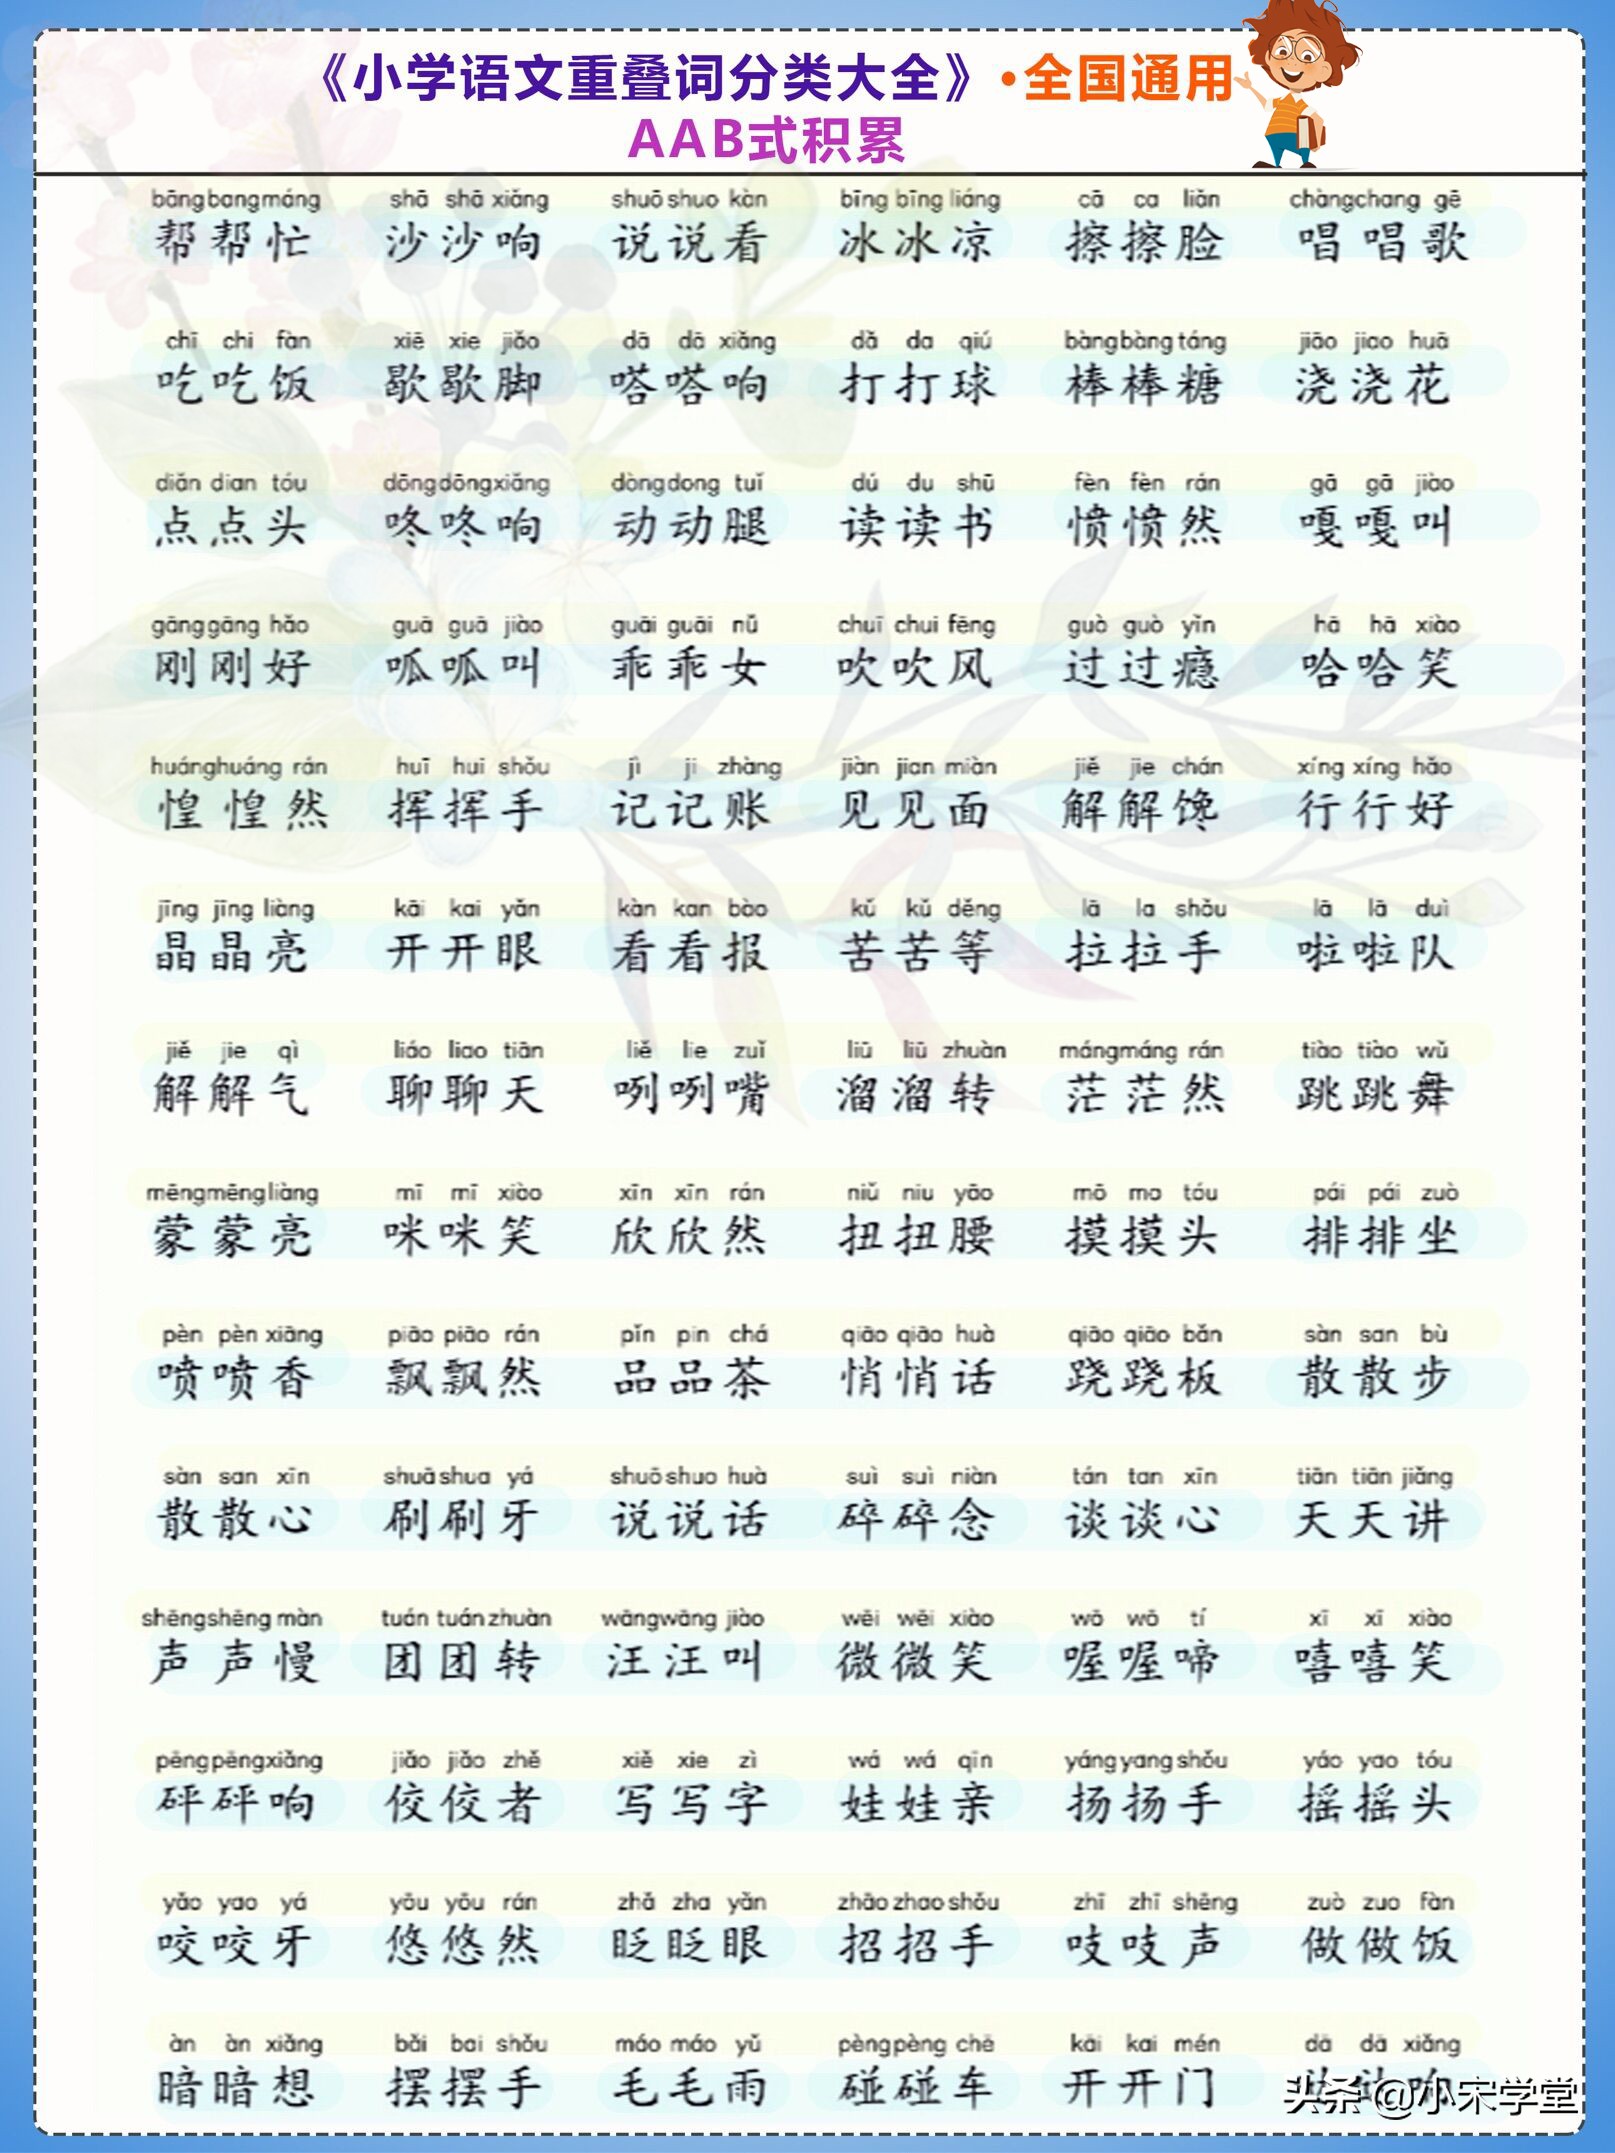 《小学语文重叠词分类大全》·全国通用
AAB式积累
bāng bang máng shā shā xiǎng shuō shuo kàn bīng bīng liáng cā ca liǎn chàng chang gē
帮帮忙 沙沙响 说说看 冰冰凉 擦擦脸 唱唱歌
chī chi fàn xiē xie jiǎo dā dā xiǎng dǎ da qiú bàng bàng táng jiāo jiao huā
吃吃饭 歇歇脚 嗒嗒响 打打球 棒棒糖 浇浇花
diǎn dian tóu dōng dōng xiǎng dòng dong tuǐ dú du shū fèn fèn rán gā gā jiào
点点头 咚咚响 动动腿 读读书 愤愤然 嘎嘎叫
gāng gāng hǎo guā guā jiào guāi guāi nǚ chuī chui fēng guò guò yǐn hā hā xiào
刚刚好 呱呱叫 乖乖女 吹吹风 过过瘾 哈哈笑
huáng huáng rán huī hui shǒu jì ji zhàng jiàn jian miàn jiě jie chán xíng xíng hǎo
惶惶然 挥挥手 记记账 见见面 解解馋 行行好
jīng jīng liàng kāi kai yǎn kàn kan bào kǔ kǔ děng lā la shǒu lā lā duì
晶晶亮 开开眼 看看报 苦苦等 拉拉手 啦啦队
jiě jie qì liáo liao tiān liě lie zuǐ liū liū zhuàn máng máng rán tiào tiào wǔ
解解气 聊聊天 咧咧嘴 溜溜转 茫茫然 跳跳舞
mēng mēng liàng mī mī xiào xīn xīn rán niǔ niu yāo mō mo tóu pái pái zuò
蒙蒙亮 咪咪笑 欣欣然 扭扭腰 摸摸头 排排坐
pèn pèn xiāng piāo piāo rán pǐn pin chá qiāo qiāo huà qiāo qiāo bǎn sàn san bù
喷喷香 飘飘然 品品茶 悄悄话 跷跷板 散散步
sàn san xīn shuā shua yá shuō shuo huà suì suì niàn tán tan xīn tiān tiān jiǎng
散散心 刷刷牙 说说话 碎碎念 谈谈心 天天讲
shēng shēng màn tuán tuán zhuàn wāng wāng jiào wēi wēi xiào wō wō tí xī xī xiào
声声慢 团团转 汪汪叫 微微笑 喔喔啼 嘻嘻笑
pēng pēng xiǎng jiǎo jiǎo zhě xiě xie zì wá wá qīn yáng yang shǒu yáo yao tóu
砰砰响 佼佼者 写写字 娃娃亲 扬扬手 摇摇头
yǎo yao yá yōu yōu rán zhǎ zha yǎn zhāo zhao shǒu zhī zhī shēng zuò zuo fàn
咬咬牙 悠悠然 眨眨眼 招招手 吱吱声 做做饭
àn àn xiǎng bǎi bai shǒu máo máo yǔ pèng pèng chē kāi kai mén dā dā xiǎng
暗暗想 摆摆手 毛毛雨 碰碰车 开开门
头条@小宋学堂